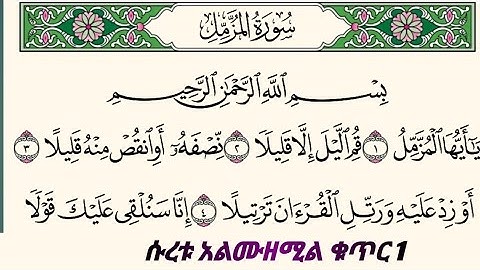 سُورَةُ المُزَّمِّلِ
بِسْمِ اللَّهِ الرَّحْمَٰنِ الرَّحِيمِ
يَا أَيُّهَا الْمُزَّمِّلُ ١ قُمِ اللَّيْلَ إِلَّا قَلِيلًا ٢ نِّصْفَهُۥٓ أَوِ انقُصْ مِنْهُ قَلِيلًا ٣
أَوْ زِدْ عَلَيْهِ وَرَتِّلِ الْقُرْءَانَ تَرْتِيلًا ٤ إِنَّا سَنُلْقِي عَلَيْكَ قَوْلًا
ሱረቱ አልሙዘሚል ቁጥር 1